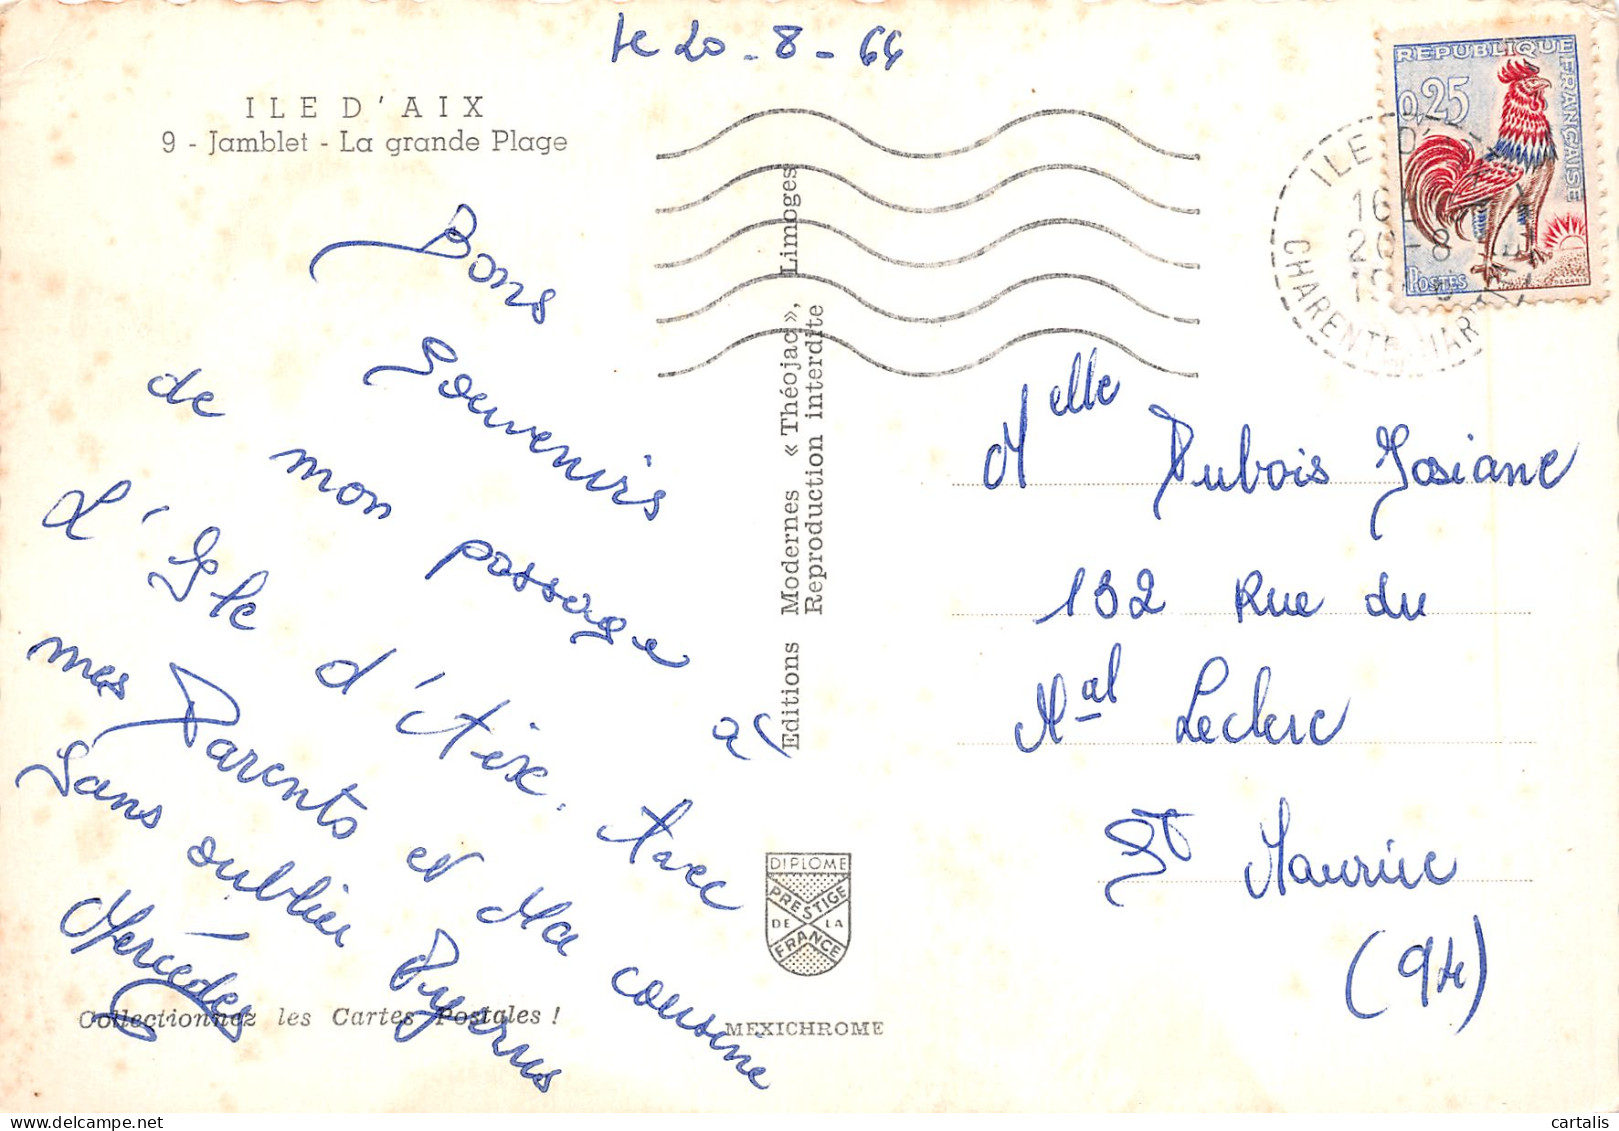 le 20-8-64
ILE D'AIX
9 - Jamblet - La grande Plage
Bons
Souvenirs
de mon passage à
L'Ile d'Aix. Avec
mes Parents et Ma cousine
Sans oublier
Mercédes
Collectionnez les Cartes Postales !
Editions Modernes « Théojac », Limoges
Reproduction interdite
DIPLOME
PRESTIGE
DE LA
FRANCE
MEXICHROME
REPUBLIQUE FRANÇAISE
0,25
POSTES
ILE D'
16H
20-8
19
CHARENTE MAR
Melle Dubois Josiane
132 Rue du
Mal Leclerc
St Maurice
(94)
cartalis